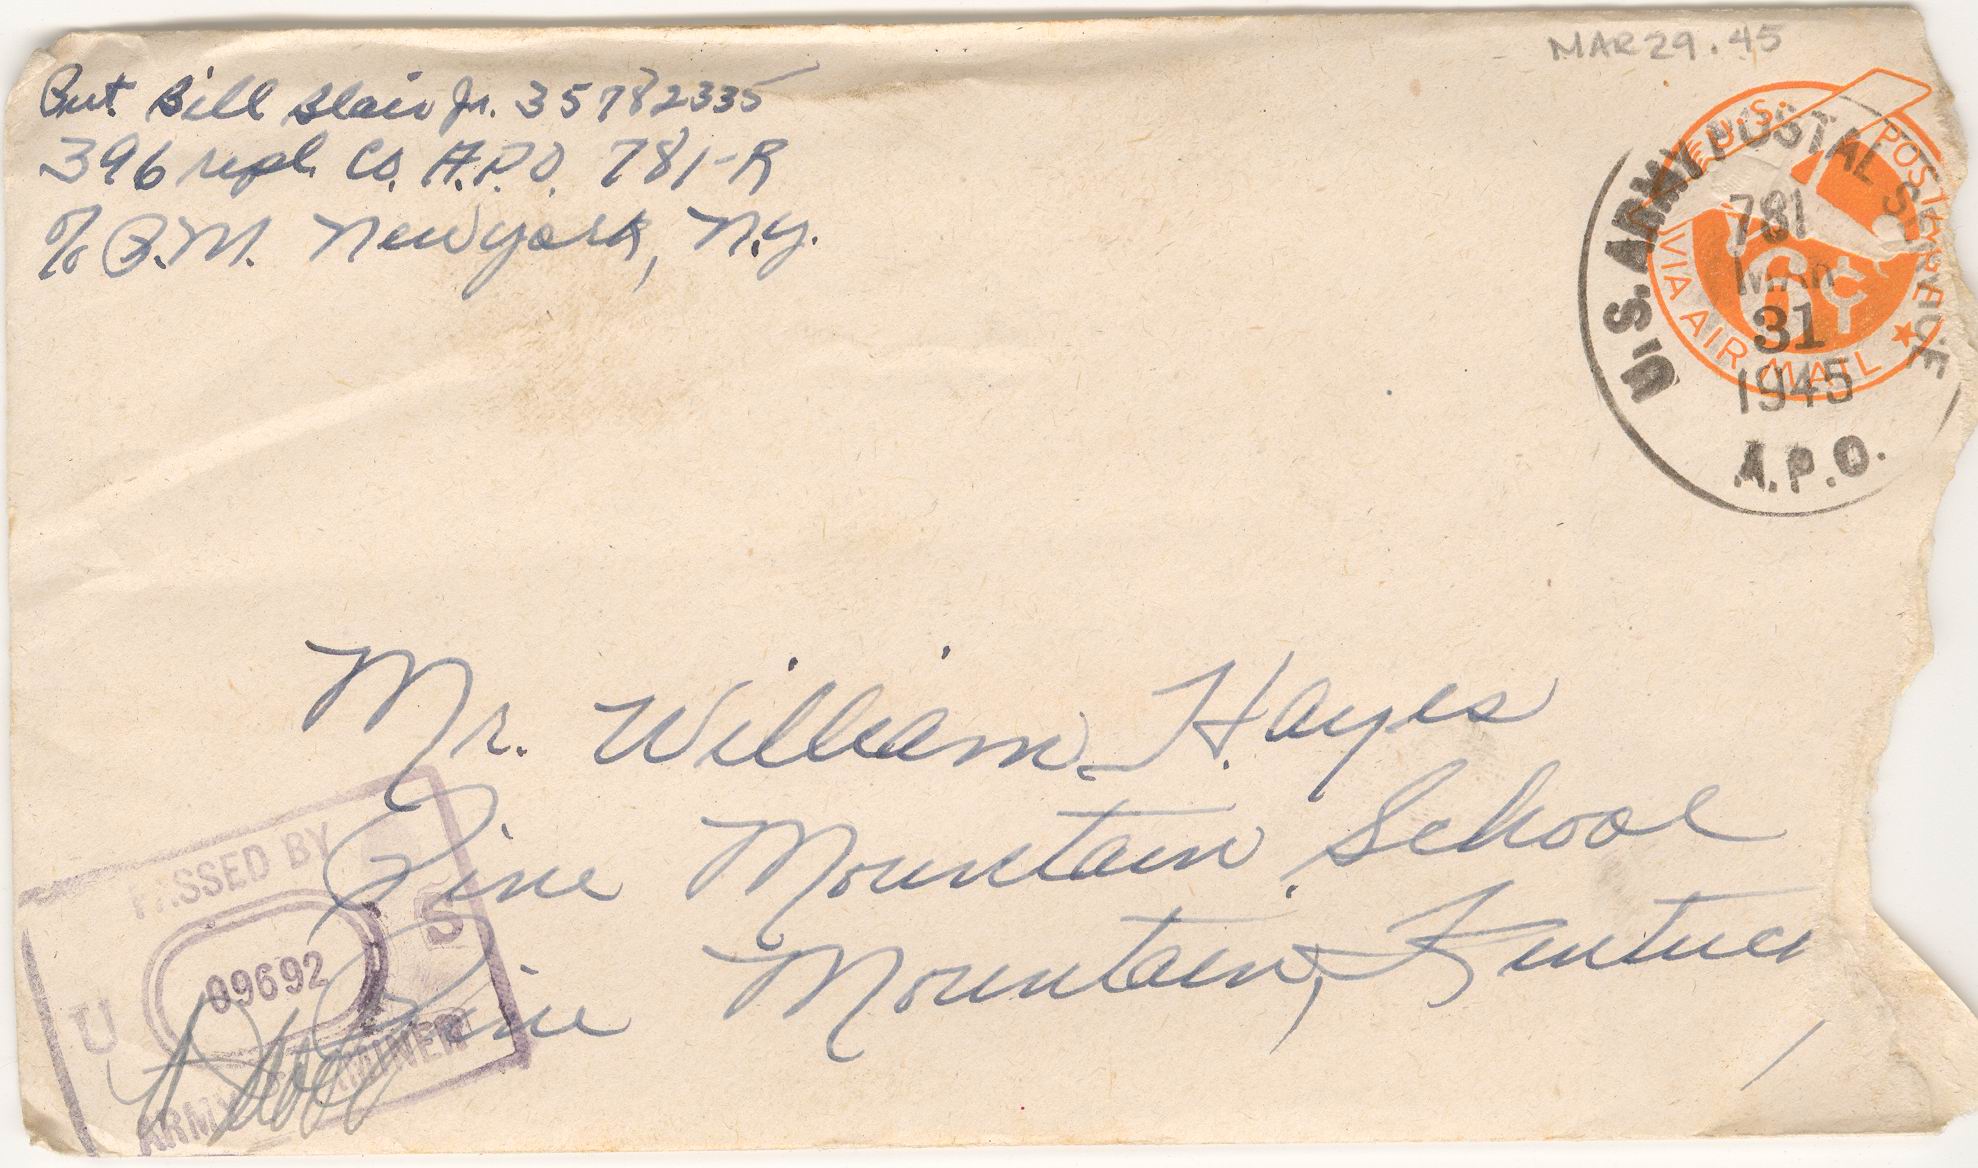 MAR 29.45
Pvt Bill Blair Jr. 35782335
396 repl. Co. A.P.O. 781-R
c/o P.M. New york, N.y.
U.S. POSTAGE
VIA AIR MAIL
6¢
U.S. ARMY POSTAL SERVICE
781
MAR
31
1945
A.P.O.
Mr. William Hayes
Pine Mountain School
Pine Mountain, Kentuc
PASSED BY
U 09692 S
ARMY EXAMINER